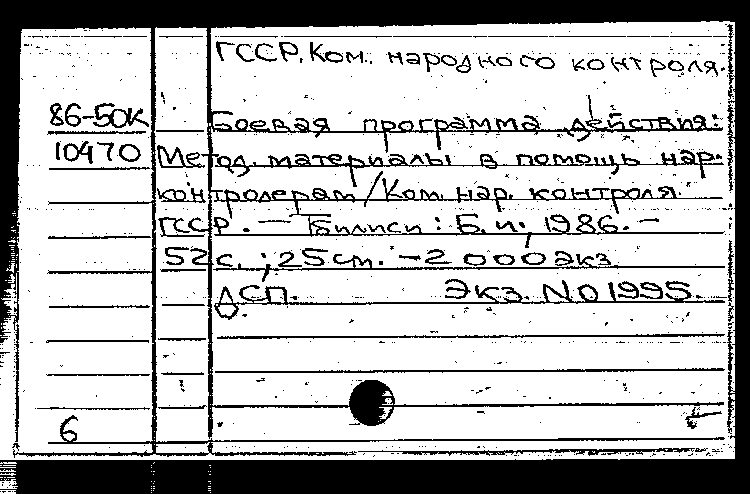 ГССР. Ком. народного контроля.
86-50К Боевая программа действия:
10470 Метод. материалы в помощь нар.
контролерам / Ком. нар. контроля
ГССР. — Тбилиси : Б. и., 1986. —
52 с. ; 25 см. — 2 000 экз
ДСП. Экз. № 01995.
6